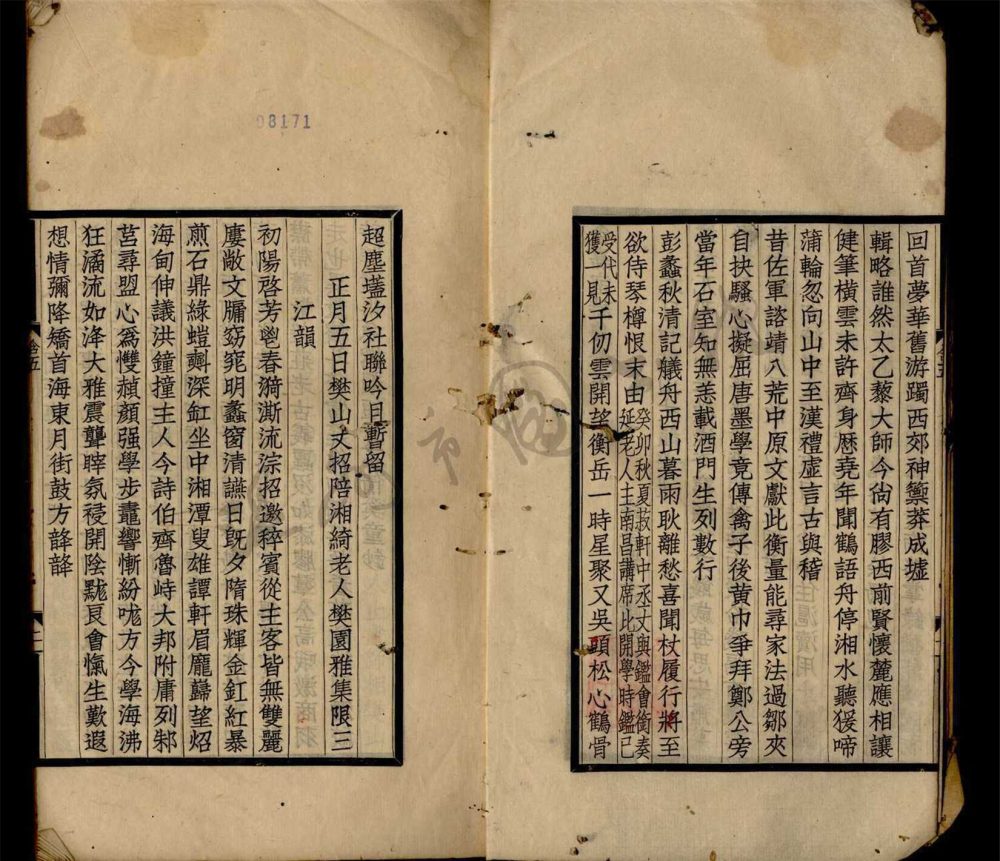 回首夢華舊游躅西郊神籞莽成墟
輯略誰然太乙藜大師今尙有膠西前賢懷麓應相讓
健筆橫雲未許齊身歷堯年聞鶴語舟停湘水聽猨啼
蒲輪忽向山中至漢禮虛言古與稽
昔佐軍諮靖八荒中原文獻此衡量能尋家法過鄒夾
自抉騷心擬屈唐墨學竟傳禽子後黃巾爭拜鄭公旁
當年石室知無恙載酒門生列數行
彭蠡秋清記艤舟西山暮雨耿離愁喜聞杖履行將至
欲侍琴樽恨末由癸卯秋夏菽軒中丞丈與鑑會銜奏
延老人主南昌講席比開學時鑑已
受代未
獲一見千仞雲開望衡岳一時星聚又吳頭松心鶴骨
超塵壒汐社聯吟今日暫留
正月五日樊山丈招陪湘綺老人樊園雅集限三
江韻
初陽啓芳鬯春漪漸流淙招邀稡賓從主客皆無雙麗
廔敞文牖窈窕明蠡窗清讌日旣夕隋珠輝金釭紅暴
煎石鼎綠螘𣂏深缸坐中湘潭叟雄譚軒眉厖巋望炤
海甸伸議洪鐘撞主人今詩伯齊魯峙大邦附庸列邾
莒尋盟心爲慫赬顏强學步鼃響慚紛哤方今學海沸
狂潏流如洚大雅震聾聹氛祲開陰黮良會愾生歎遐
想情彌降矯首海東月街鼓方韸韸
08171